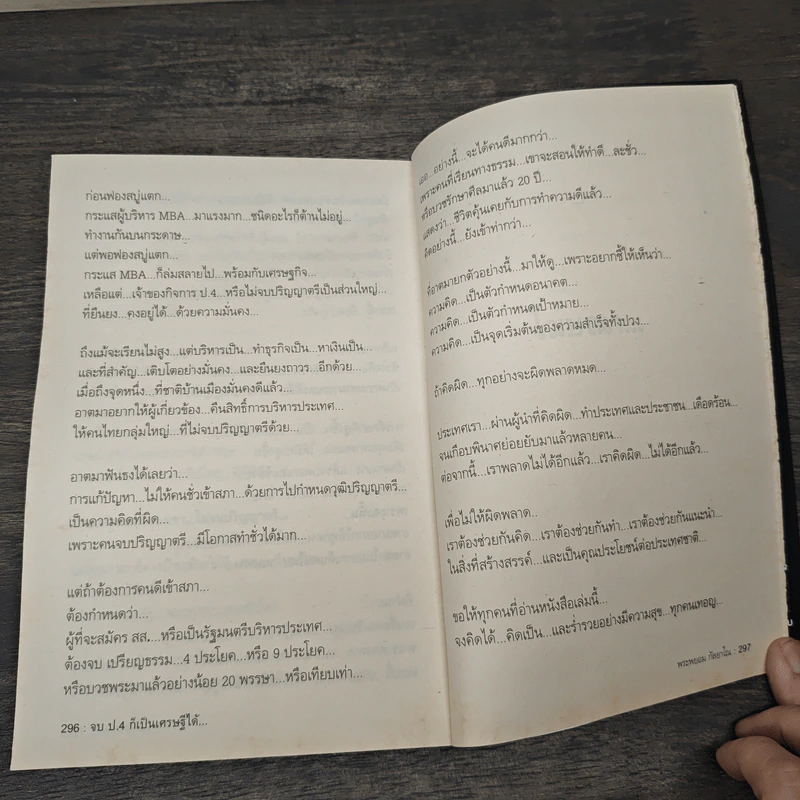 ก่อนฟองสบู่แตก...
กระแสผู้บริหาร MBA...มาแรงมาก...ชนิดอะไรก็ต้านไม่อยู่...
ทำงานกันบนกระดาษ...
แต่พอฟองสบู่แตก...
กระแส MBA...ก็ล่มสลายไป...พร้อมกับเศรษฐกิจ...
เหลือแต่...เจ้าของกิจการ ป.4...หรือไม่จบปริญญาตรีเป็นส่วนใหญ่...
ที่ยืนยง...คงอยู่ได้...ด้วยความมั่นคง...
ถึงแม้จะเรียนไม่สูง...แต่บริหารเป็น...ทำธุรกิจเป็น...หาเงินเป็น...
และที่สำคัญ...เติบโตอย่างมั่นคง...และยืนยงถาวร...อีกด้วย...
เมื่อถึงจุดหนึ่ง...ที่ชาติบ้านเมืองมั่นคงดีแล้ว...
อาตมาอยากให้ผู้เกี่ยวข้อง...คืนสิทธิ์การบริหารประเทศ...
ให้คนไทยกลุ่มใหญ่...ที่ไม่จบปริญญาตรีด้วย...
อาตมาฟันธงได้เลยว่า...
การแก้ปัญหา...ไม่ให้คนชั่วเข้าสภา...ด้วยการไปกำหนดวุฒิปริญญาตรี...
เป็นความคิดที่ผิด...
เพราะคนจบปริญญาตรี...มีโอกาสทำชั่วได้มาก...
แต่ถ้าต้องการคนดีเข้าสภา...
ต้องกำหนดว่า...
ผู้ที่จะสมัคร สส....หรือเป็นรัฐมนตรีบริหารประเทศ...
ต้องจบ เปรียญธรรม...4 ประโยค...หรือ 9 ประโยค...
หรือบวชพระมาแล้วอย่างน้อย 20 พรรษา...หรือเทียบเท่า...
296 : จบ ป.4 ก็เป็นเศรษฐีได้...
เออ...อย่างนี้...จะได้คนดีมากกว่า...
เพราะคนที่เรียนทางธรรม...เขาจะสอนให้ทำดี...ละชั่ว...
หรือบวชรักษาศีลมาแล้ว 20 ปี...
แสดงว่า...ชีวิตคุ้นเคยกับการทำความดีแล้ว...
คิดอย่างนี้...ยังเข้าท่ากว่า...
ที่อาตมายกตัวอย่างนี้...มาให้ดู...เพราะอยากชี้ให้เห็นว่า...
ความคิด...เป็นตัวกำหนดอนาคต...
ความคิด...เป็นตัวกำหนดเป้าหมาย...
ความคิด...เป็นจุดเริ่มต้นของความสำเร็จทั้งปวง...
ถ้าคิดผิด...ทุกอย่างจะผิดพลาดหมด...
ประเทศเรา...ผ่านผู้นำที่คิดผิด...ทำประเทศและประชาชน...เดือดร้อน...
จนเกือบพินาศย่อยยับมาแล้วหลายคน...
ต่อจากนี้...เราพลาดไม่ได้อีกแล้ว...เราคิดผิด...ไม่ได้อีกแล้ว...
เพื่อไม่ให้ผิดพลาด...
เราต้องช่วยกันคิด...เราต้องช่วยกันทำ...เราต้องช่วยกันแนะนำ...
ในสิ่งที่สร้างสรรค์...และเป็นคุณประโยชน์ต่อประเทศชาติ...
ขอให้ทุกคนที่อ่านหนังสือเล่มนี้...
จงคิดได้...คิดเป็น...และร่ำรวยอย่างมีความสุข...ทุกคนเทอญ...
พระพยอม กัลยาโณ : 297